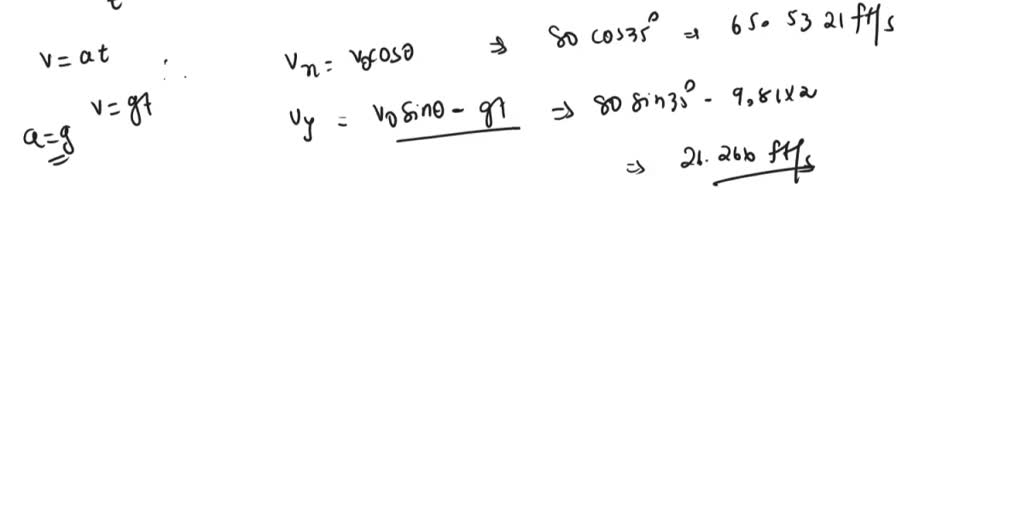 t
v = at
∴
v = gt
a = g
Vx = v0 cosθ ⇒ 80 cos35° ⇒ 65.5321 ft/s
Vy = v0 sinθ - gt ⇒ 80 sin35° - 9.81x2
⇒ 26.266 ft/s